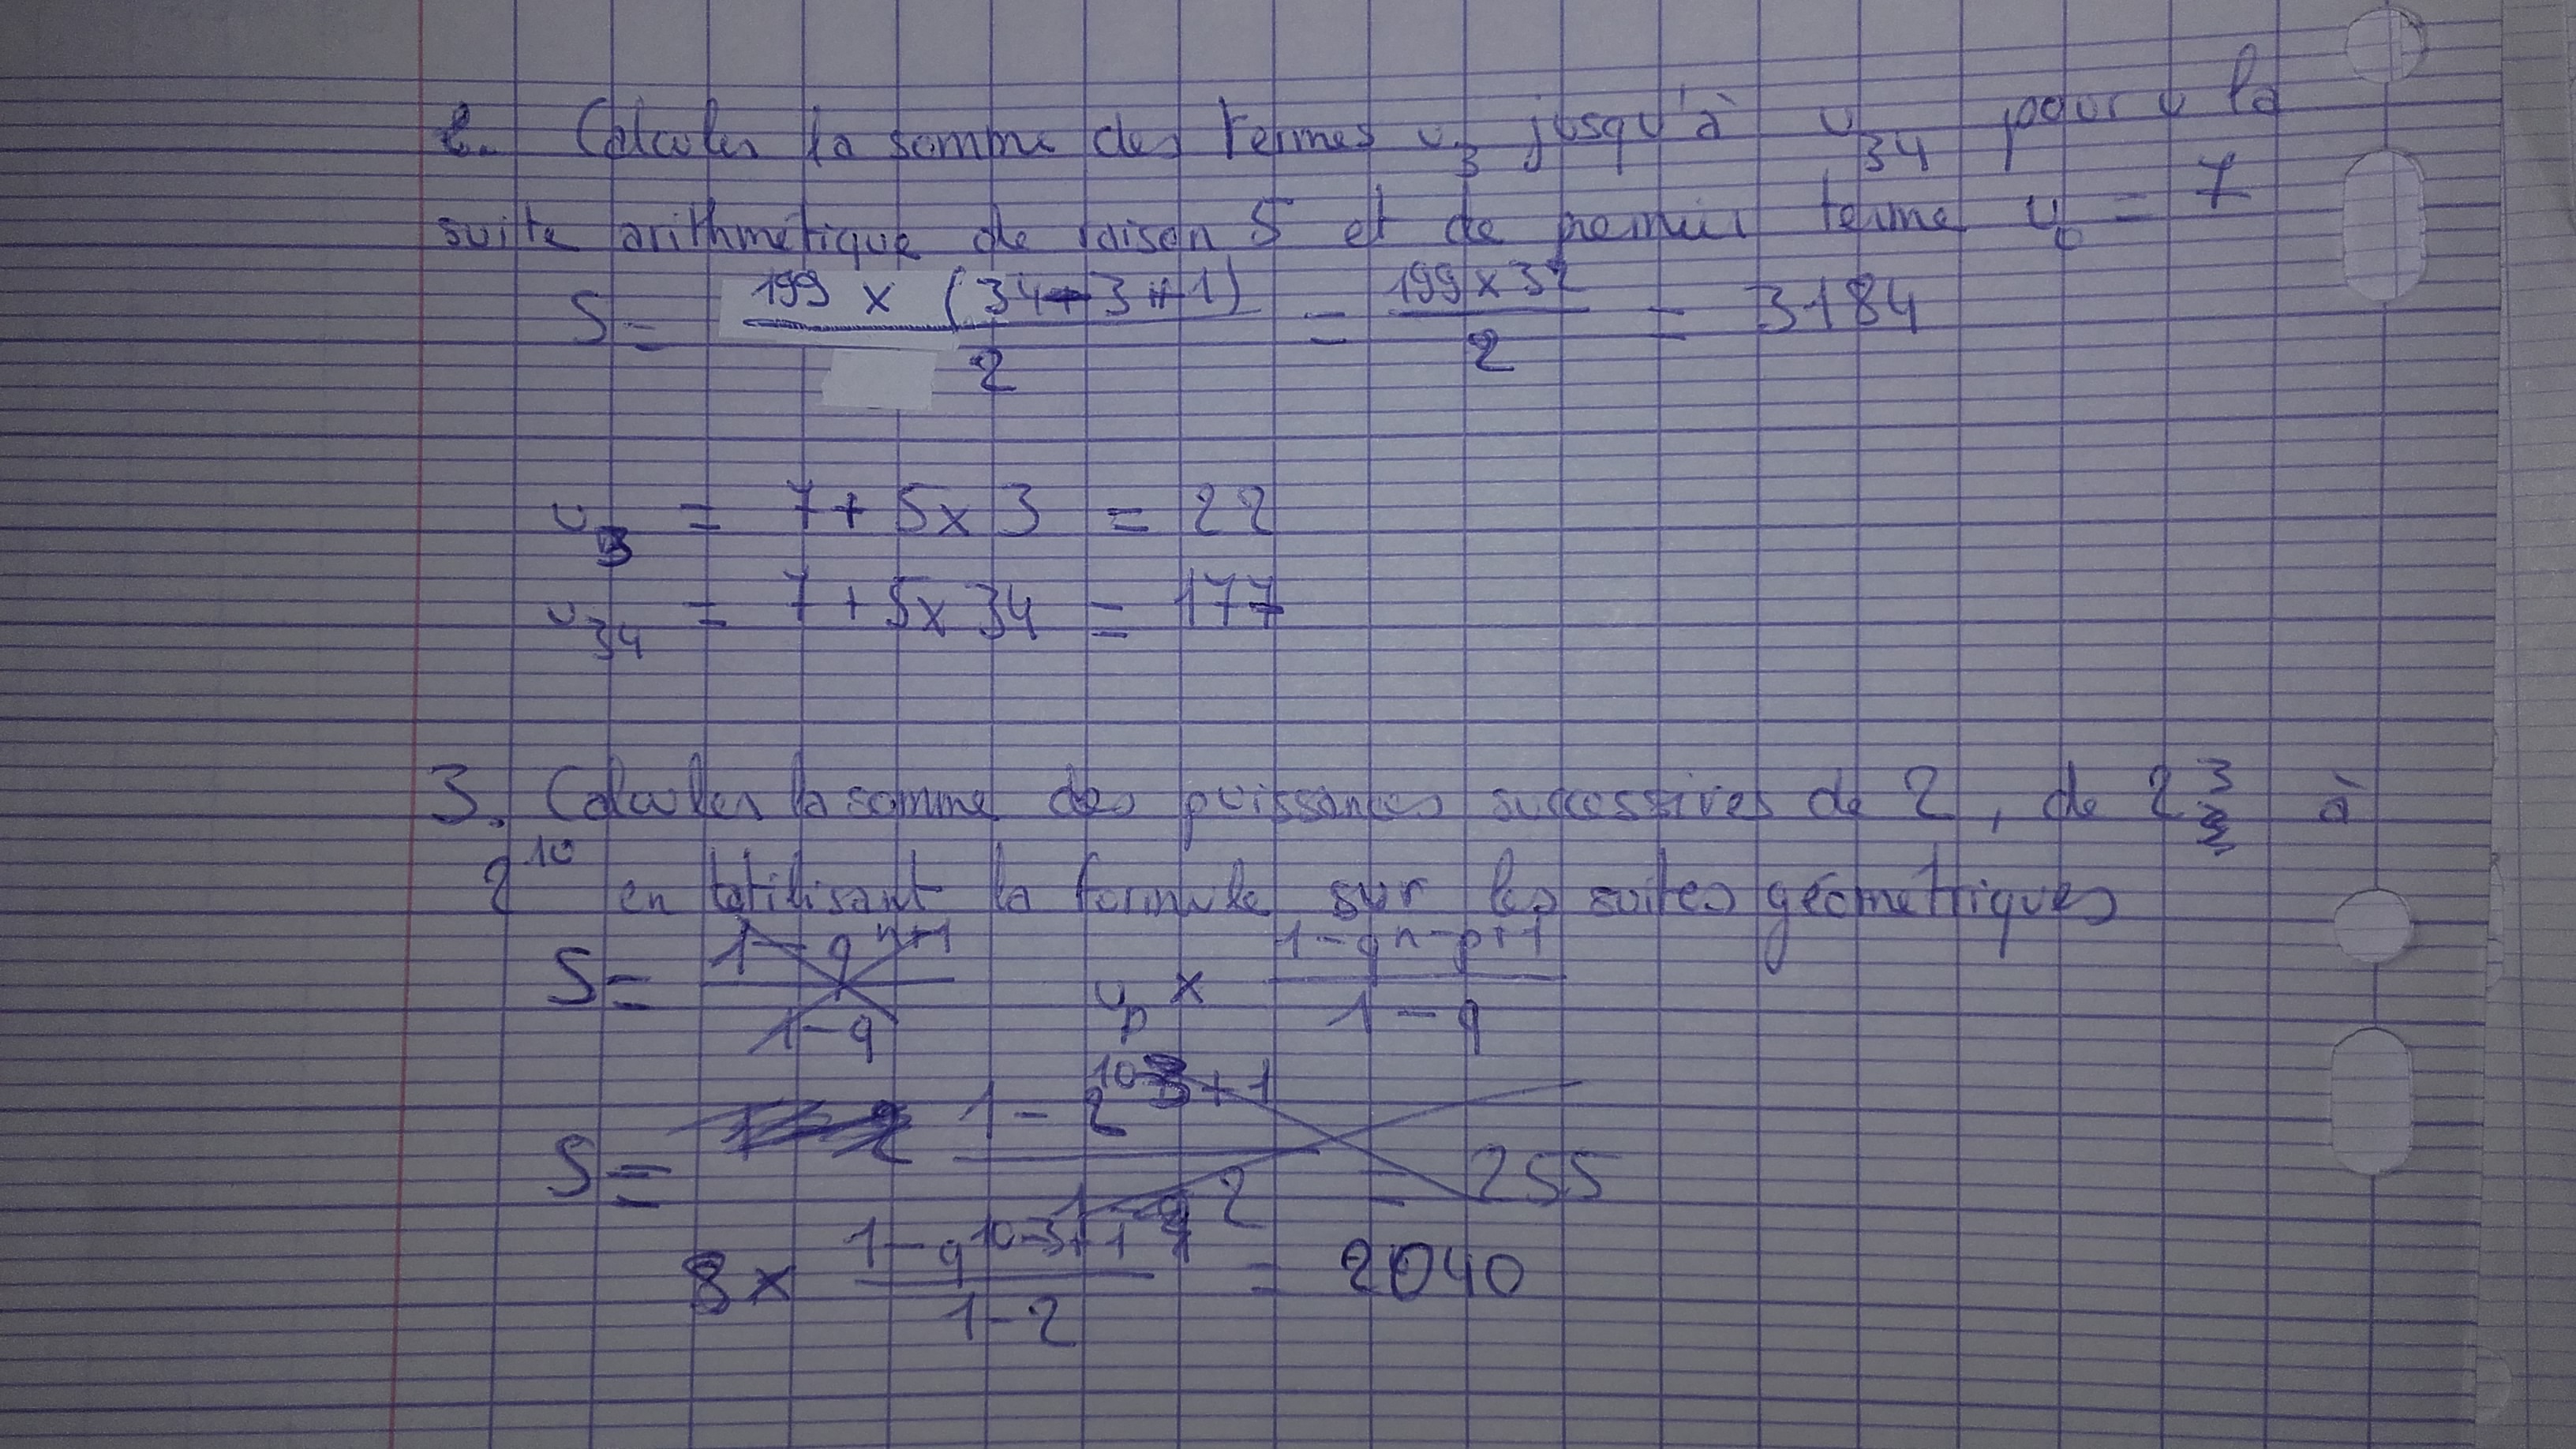 2. Calculer la somme des termes u₃ jusqu'à u₃₄ pour u la
suite arithmétique de raison 5 et de premier terme u₀ = 7
S = 199 x (34-3+1) / 2 = 199 x 32 / 2 = 3184
u₃ = 7 + 5 x 3 = 22
u₃₄ = 7 + 5 x 34 = 177
3. Calculer la somme des puissances successives de 2, de 2³ à
2¹⁰ en utilisant la formule sur les suites géométriques
S = 1-qⁿ⁺¹ / 1-q uₚ x 1-qⁿ⁻ᵖ⁺¹ / 1-q
S = 1-2¹⁰⁻³⁺¹ / 1-2 = 255
8 x 1-q¹⁰⁻³⁺¹ / 1-2 = 2040